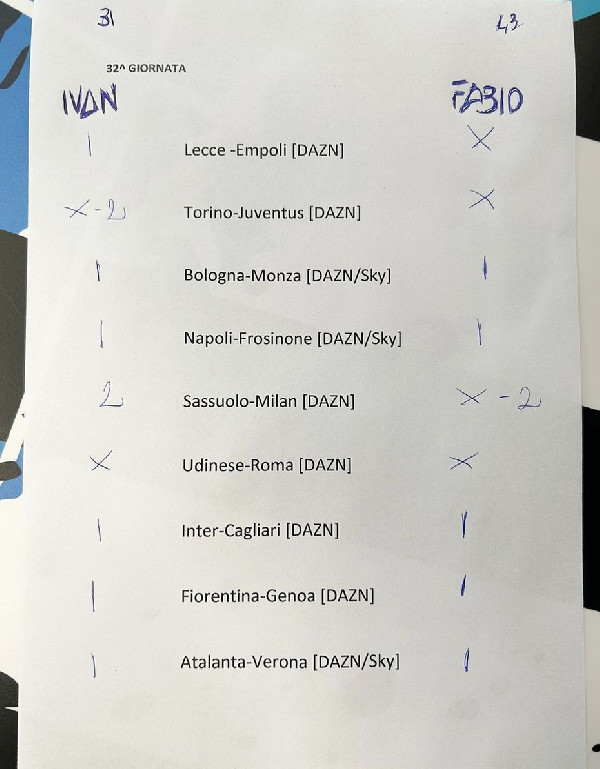 31 43
32^ GIORNATA
IVAN FABIO
1 Lecce -Empoli [DAZN] X
X-2 Torino-Juventus [DAZN] X
1 Bologna-Monza [DAZN/Sky] 1
1 Napoli-Frosinone [DAZN/Sky] 1
2 Sassuolo-Milan [DAZN] X-2
X Udinese-Roma [DAZN] X
1 Inter-Cagliari [DAZN] 1
1 Fiorentina-Genoa [DAZN] 1
1 Atalanta-Verona [DAZN/Sky] 1